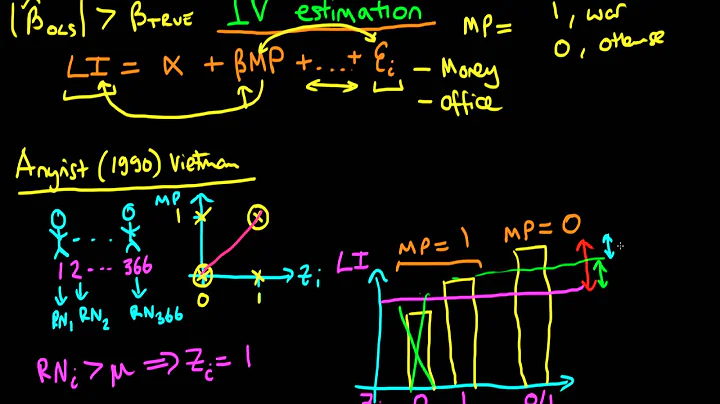 |β̂OLS| > βTRUE
IV estimation
MP = 1, war
0, otherwise
LI = α + βMP + ... + εi
- Money
- office
Angrist (1990) Vietnam
MP
1
0 1 Zi
1 2 ... 366
RN1 RN2 RN366
RNi > μ ⟹ Zi = 1
LI
MP = 1
MP = 0
Zi 0 1 0/1